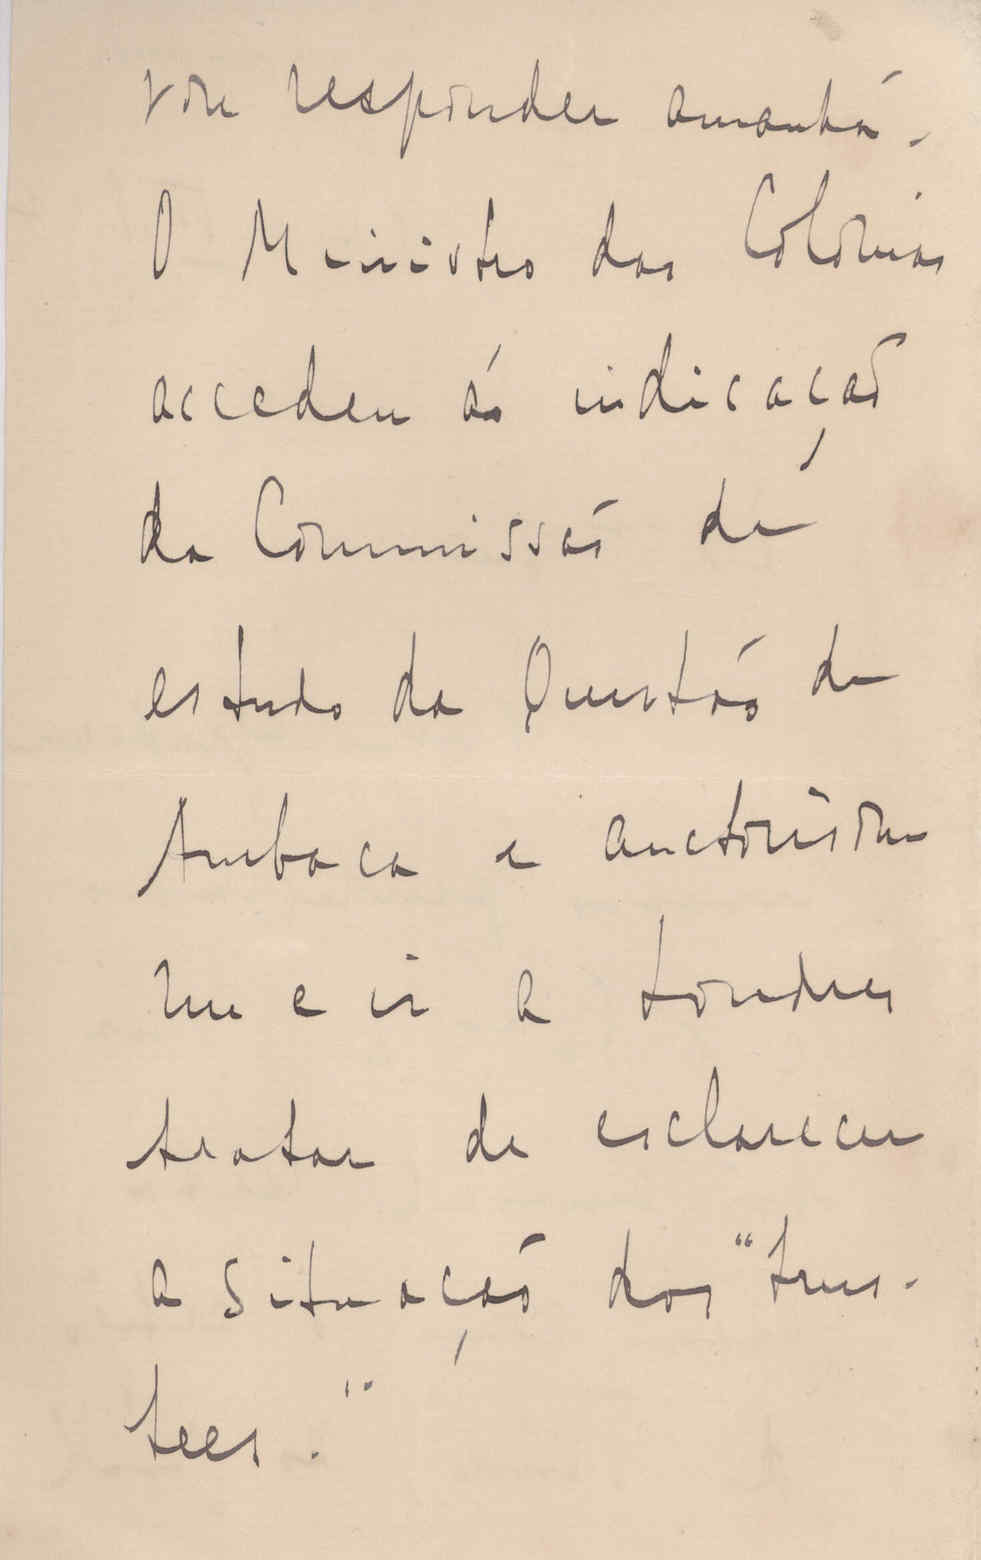 vou responder amanhã.
O Ministro das Colonias
accedeu á indicação
da Commissão de
estudo da Questão de
Ambaca e auctorisou
me e ir a Londres
tratar de esclarecer
a situação dos "trus-
tees."